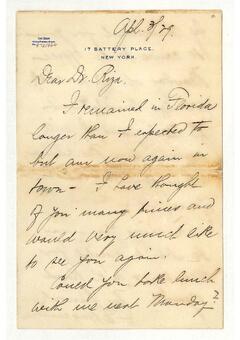 Apl. 3/29.
17 BATTERY PLACE.
NEW YORK.
Dear Dr.
I remained in Florida
longer than I expected to
but am now again in
town - I have thought
of you many times and
would very much like
to see you again.
Could you take lunch
with me next Monday?